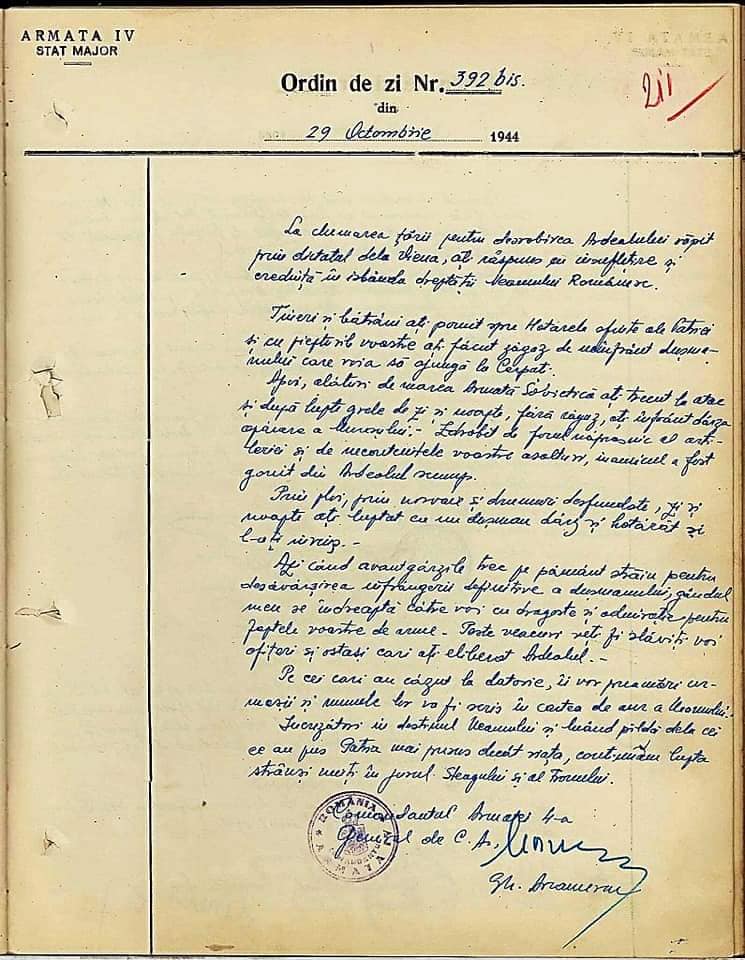 ARMATA IV
STAT MAJOR
Ordin de zi Nr. 392 bis.
din
29 Octombrie 1944
211
La chemarea țării pentru desrobirea Ardealului răpit
prin dictatul dela Viena, ați răspuns cu însuflețire și
credință în isbânda dreptății Neamului Românesc.
Tineri și bătrâni ați pornit spre Hotarele sfinte ale Patriei
și cu piepturile voastre ați făcut zăgaz de neînfrânt dușma-
nului care voia să ajungă la Carpați.
Apoi, alături de marea Armată Sovietică ați trecut la atac
și după lupte grele de zi și noapte, fără răgaz, ați înfrânt dârza
apărare a Mureșului.- Zdrobit de focul năprasnic al arti-
leriei și de necontenitele voastre asalturi, inamicul a fost
gonit din Ardealul scump.
Prin ploi, prin noroaie și drumuri desfundate, zi și
noapte ați luptat cu un dușman dârz și hotărât și
l-ați învins.-
Azi când avantgărzile trec pe pământ străin pentru
desăvârșirea înfrângerii definitive a dușmanului, gândul
meu se îndreaptă către voi cu dragoste și admirație pentru
faptele voastre de arme.- Peste veacuri veți fi slăviți voi
ofițeri și ostași cari ați eliberat Ardealul.-
Pe cei cari au căzut la datorie, îi vor preamări ur-
mașii și numele lor va fi scris în cartea de aur a Neamului.-
Încrezători în destinul Neamului și luând pildă dela cei
ce au pus Patria mai presus decât viața, continuăm lupta
strânși uniți în jurul Steagului și al Tronului.
Comandantul Armatei 4-a
General de C. A.,
Gh. Avramescu
ROMÂNIA